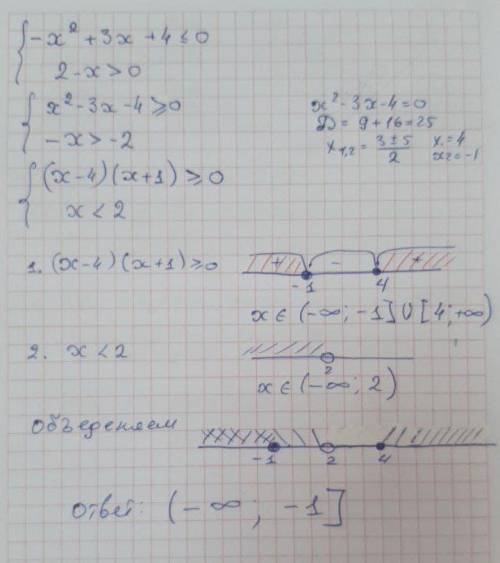 { -x² + 3x + 4 ≤ 0
2 - x > 0
{ x² - 3x - 4 ≥ 0
-x > -2
x² - 3x - 4 = 0
D = 9 + 16 = 25
x₁,₂ = (3 ± 5)/2 x₁ = 4
x₂ = -1
{ (x-4)(x+1) ≥ 0
x < 2
1. (x-4)(x+1) ≥ 0
+ - +
-1 4
x ∈ (-∞; -1] ∪ [4; +∞)
2. x < 2
2
x ∈ (-∞; 2)
Объеденяем
-1 2 4
Ответ: (-∞; -1]